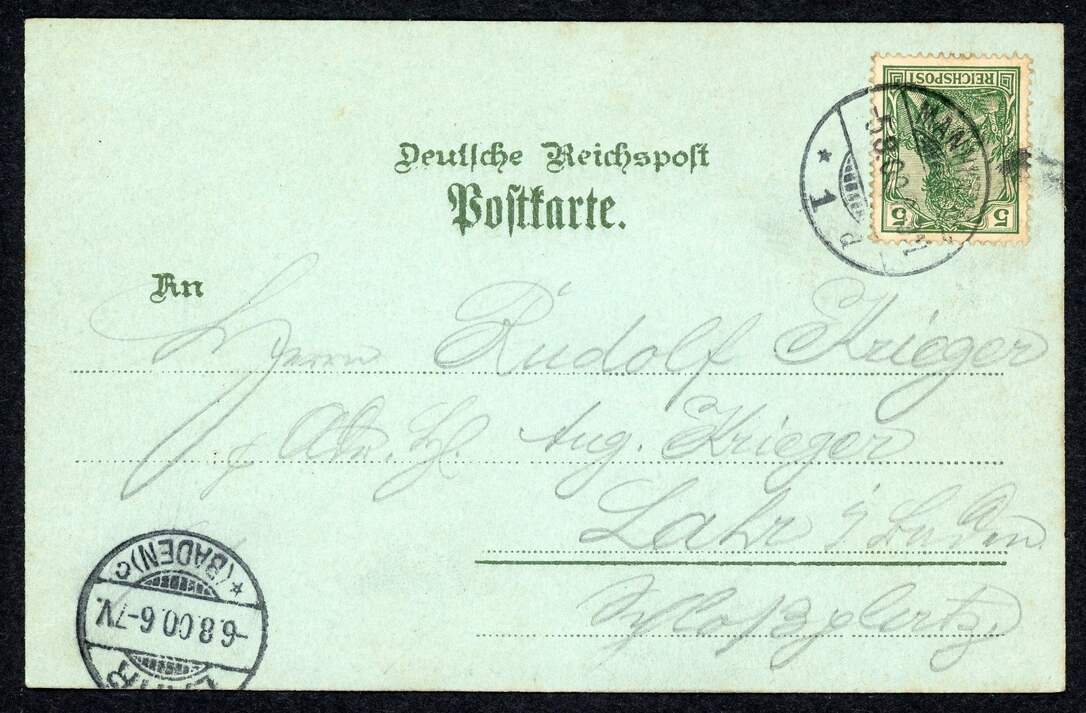 REICHSPOST
5 5
MANNHEIM
5.8.00
* 1 d
Deutsche Reichspost
Postkarte.
An
Herrn Rudolf Krieger
Adr. H. Aug. Krieger
Lahr i/Baden
Schloßplatz.
LAHR
*(BADEN)c
-6.8.00.6-7V.